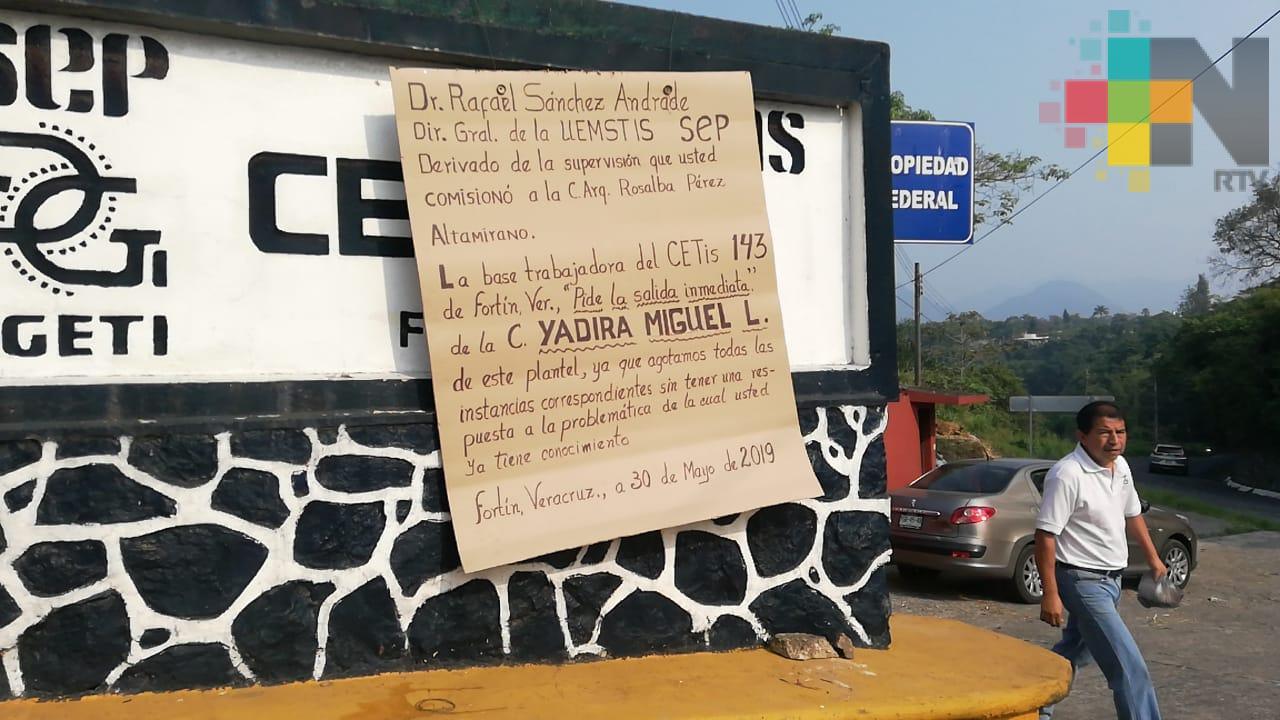 sep
GETI
CE
OS
F
Dr. Rafael Sánchez Andrade
Dir. Gral. de la UEMSTIS SEP
Derivado de la supervisión que usted
comisionó a la C. Arq. Rosalba Pérez
Altamirano.
La base trabajadora del CETis 143
de Fortín, Ver., "Pide la salida inmediata"
de la C. YADIRA MIGUEL L.
de este plantel, ya que agotamos todas las
instancias correspondientes sin tener una res-
puesta a la problemática de la cual usted
ya tiene conocimiento
Fortín, Veracruz., a 30 de Mayo de 2019
OPIEDAD
EDERAL
N
RTV